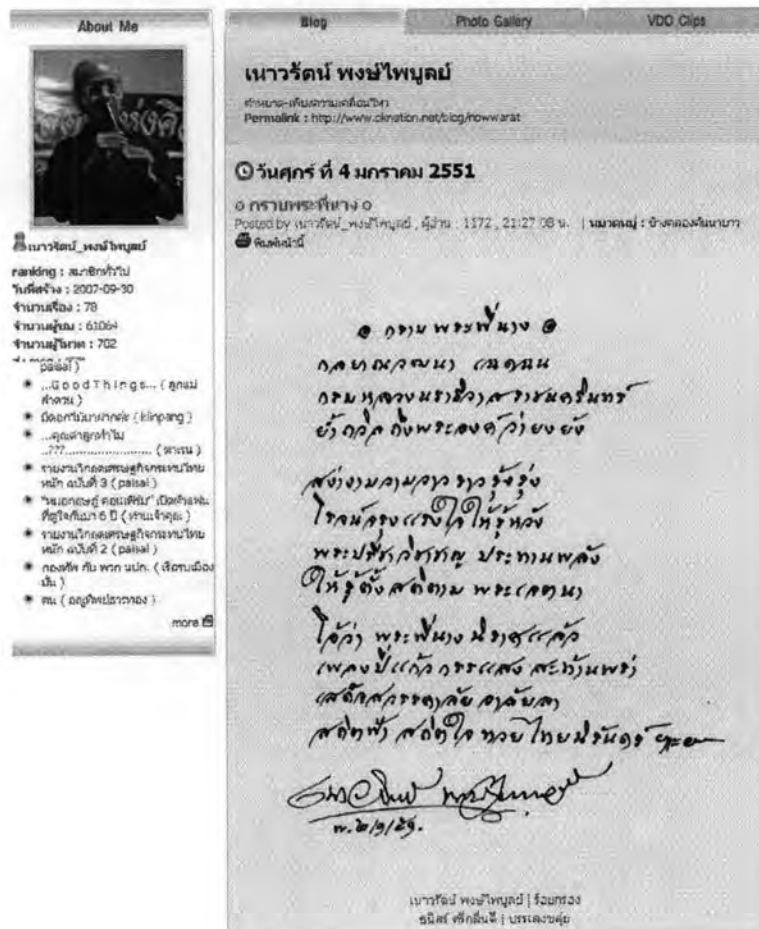 About Me
เนาวรัตน์_พงษ์ไพบูลย์
ranking : สมาชิกทั่วไป
วันที่สร้าง : 2007-09-30
จำนวนเรื่อง : 78
จำนวนผู้ชม : 61064
จำนวนผู้โหวต : 702
paisal )
...G o o d T h i n g s... ( ลูกแม่
ลำดวน )
มีดอกไม้มาฝากค่ะ ( klinpang )
...คุณค่าลูกทำไม
...???........................
รายงานวิกฤตเศรษฐกิจกระทบไทย
หนัก ฉบับที่ 3 ( paisal )
"หมอกฤษฎ์ คอนเฟิร์ม" เปิดคำแฟน
ที่ดูใจกันมา 6 ปี
รายงานวิกฤตเศรษฐกิจกระทบไทย
หนัก ฉบับที่ 2 ( paisal )
กองทัพ กับ พวก นปก. ( เสือรบเมือง
more
Blog
Photo Gallery
VDO Clips
เนาวรัตน์ พงษ์ไพบูลย์
คำหยาด-เพียงความเคลื่อนไหว
Permalink : http://www.oknation.net/blog/nowwarat
วันศุกร์ ที่ 4 มกราคม 2551
o กราบพระพี่นาง o
Posted by เนาวรัตน์_พงษ์ไพบูลย์ , ผู้อ่าน : 1172 , 21:27:08 น. | หมวดหมู่ : ข้างคลองคันนายาว
พิมพ์หน้านี้
๏ กราบพระพี่นาง ๏
กัลยาณิวัฒนา
กรมหลวงนราธิวาสราชนครินทร์
ย้ำถวิลถึงพระองค์ว่ายงยัง
สง่างามวามวาวราวรุ้งรุ่ง
โรจน์จรุงแรงใจให้รู้หวัง
พระปรีชาวิชาชาญ ประทานพลัง
ให้รู้ตั้งสติตาม พระเจตนา
โอ้ว่า พระพี่นาง นิราศแล้ว
เพลงปี่แก้ว กรรแสง สะท้านพร่า
เสด็จสวรรคาลัย อาลัยลา
สถิตฟ้า สถิตใจ ทวยไทยนิรันดร์
เนาวรัตน์ พงษ์ไพบูลย์
พ. ๒/๑/๕๑.
เนาวรัตน์ พงษ์ไพบูลย์ | ร้อยกรอง
ธนิสร์ ศรีกลิ่นดี | บรรเลงขลุ่ย